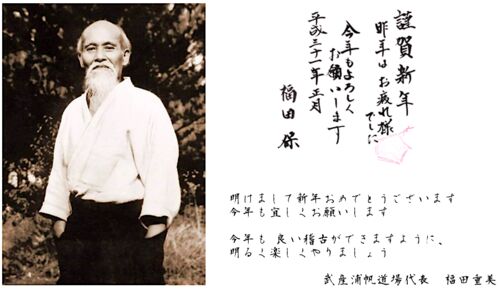 謹賀新年
昨年は お疲れ様
でした
今年もよろしく
お願いします
平成三十一年 正月
福田 保
明けまして新年おめでとうございます
今年も宜しくお願いします
今年も 良い稽古ができますように、
明るく楽しくやりましょう
武産浦帆道場代表 福田重美